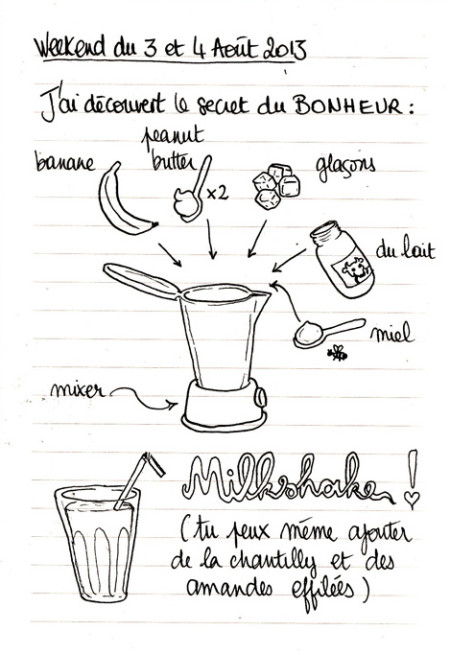 Weekend du 3 et 4 Août 2013
J'ai découvert le secret du BONHEUR :
banane
peanut
butter
x2
glaçons
du lait
miel
mixer
Milkshake !
(tu peux même ajouter
de la chantilly et des
amandes effilées)